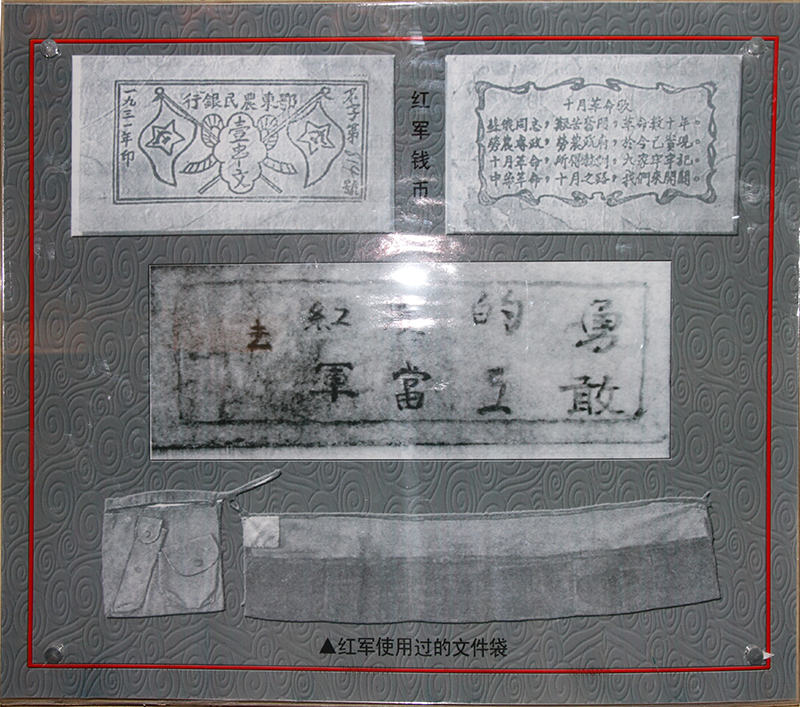 鄂東農民銀行
一九三一年印
壹串文
字第
號
红军钱币
十月革命歌
蘇俄同志，艱苦奮鬥，革命數十年。
勞農專政，勞農政府，於今已實現。
十月革命，所得教訓，大家牢牢記。
革命，十月之路，我們來開闢。
勇敢
的工
當
紅軍
去
▲红军使用过的文件袋